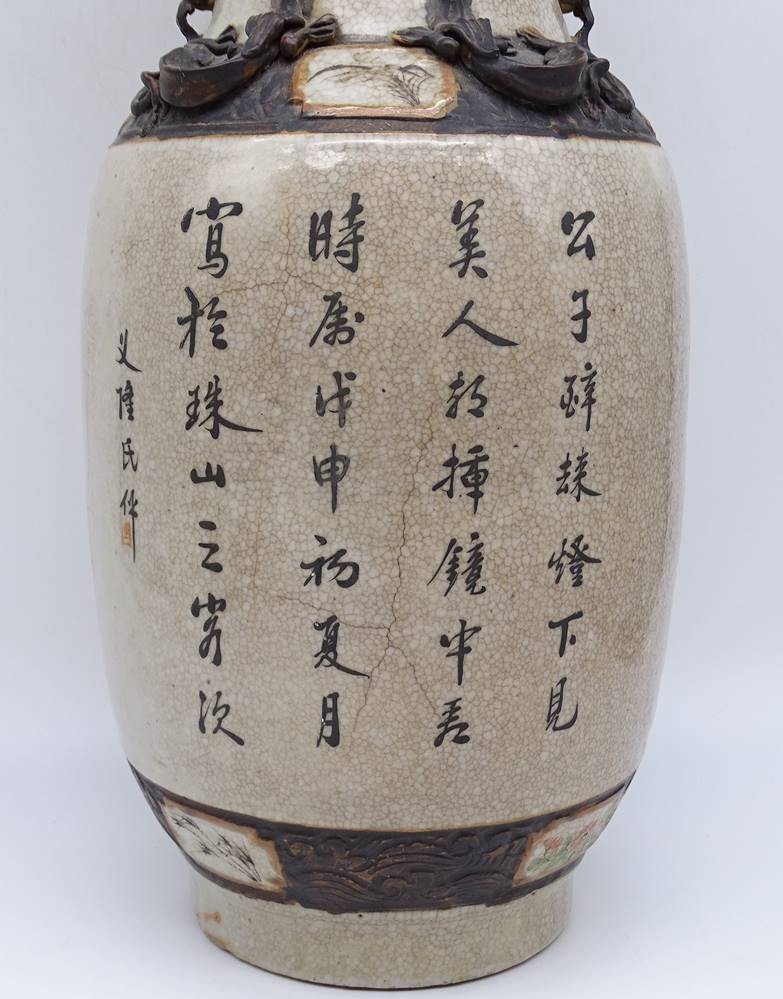 公子醉歸燈下見
美人朝插鏡中看
時属戊申初夏月
寫於珠山之客次
义隆氏作